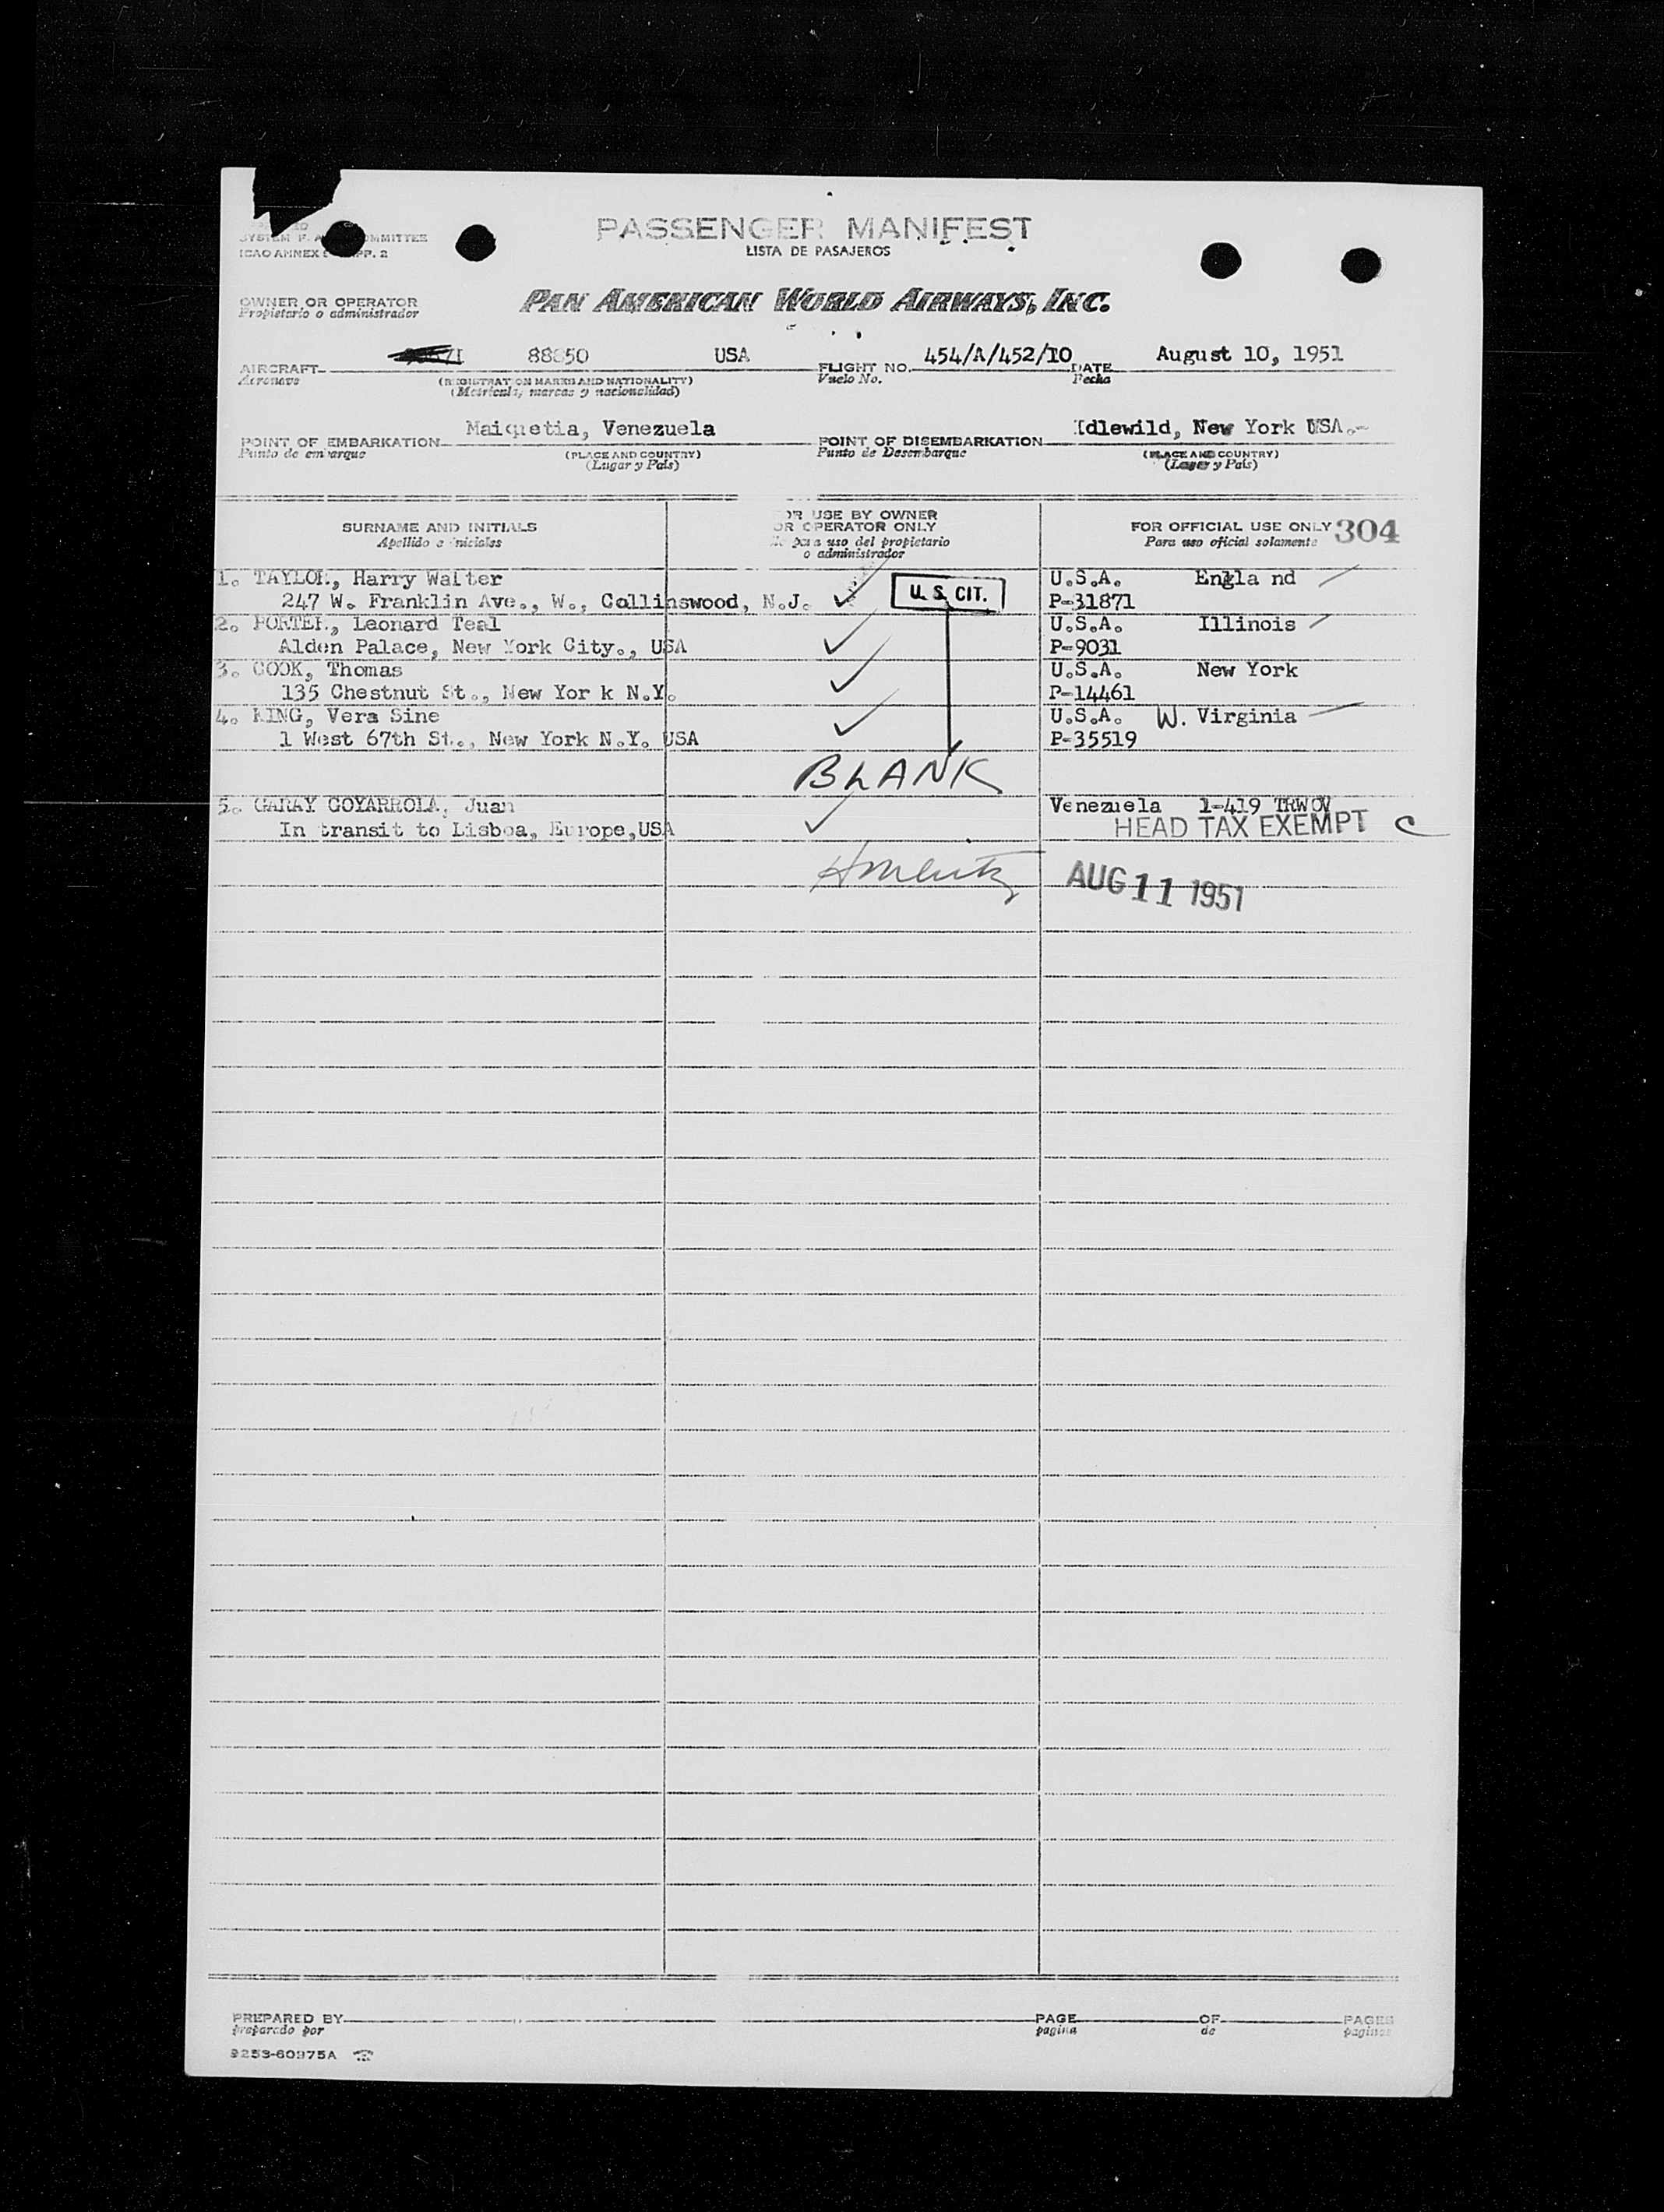 SYSTEM
ICAO ANNEX 9 APP. 2
PASSENGER MANIFEST
LISTA DE PASAJEROS
OWNER OR OPERATOR
Propietario o administrador
PAN AMERICAN WORLD AIRWAYS, INC.
AIRCRAFT 88850 USA FLIGHT NO. 454/A/452/10 DATE August 10, 1951
Aeronave (REGISTRATION MARKS AND NATIONALITY) Vuelo No. Fecha
(Matricula, marcas y nacionalidad)
POINT OF EMBARKATION Maiquetia, Venezuela POINT OF DISEMBARKATION Idlewild, New York USA.-
Punto de embarque (PLACE AND COUNTRY) Punto de Desembarque (PLACE AND COUNTRY)
(Lugar y País) (Lugar y País)
SURNAME AND INITIALS
Apellido e iniciales
FOR USE BY OWNER
OR OPERATOR ONLY
para uso del propietario
o administrador
FOR OFFICIAL USE ONLY 304
Para uso oficial solamente
1. TAYLOR, Harry Walter U.S.A. Engla nd
247 W. Franklin Ave., W., Collinswood, N.J. U. S. CIT. P-31871
2. PORTER, Leonard Teal U.S.A. Illinois
Alden Palace, New York City., USA P-9031
3. COOK, Thomas U.S.A. New York
135 Chestnut St., New Yor k N.Y. P-14461
4. KING, Vera Sine U.S.A. W. Virginia
1 West 67th St., New York N.Y. USA P-35519
BLANK
5. GARAY GOYARROLA, Juan Venezuela 1-419 TRWOV
In transit to Lisboa, Europe,USA HEAD TAX EXEMPT C
AUG 11 1951
PREPARED BY PAGE OF PAGES
preparado por pagina de paginas
9253-60975A